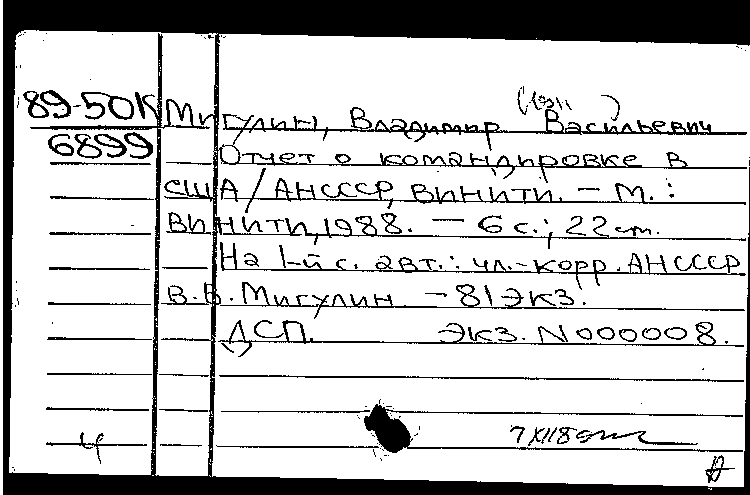 89-50К
6899
(1911 )
Мигулин, Владимир Васильевич
Отчет о командировке в
США / АНСССР, ВИНИТИ. — М. :
ВИНИТИ, 1988. — 6 с. ; 22 см.
На 1-й с. авт.: чл.-корр. АНСССР
В.В. Мигулин. — 81 экз.
ДСП. Экз. N000008.
4